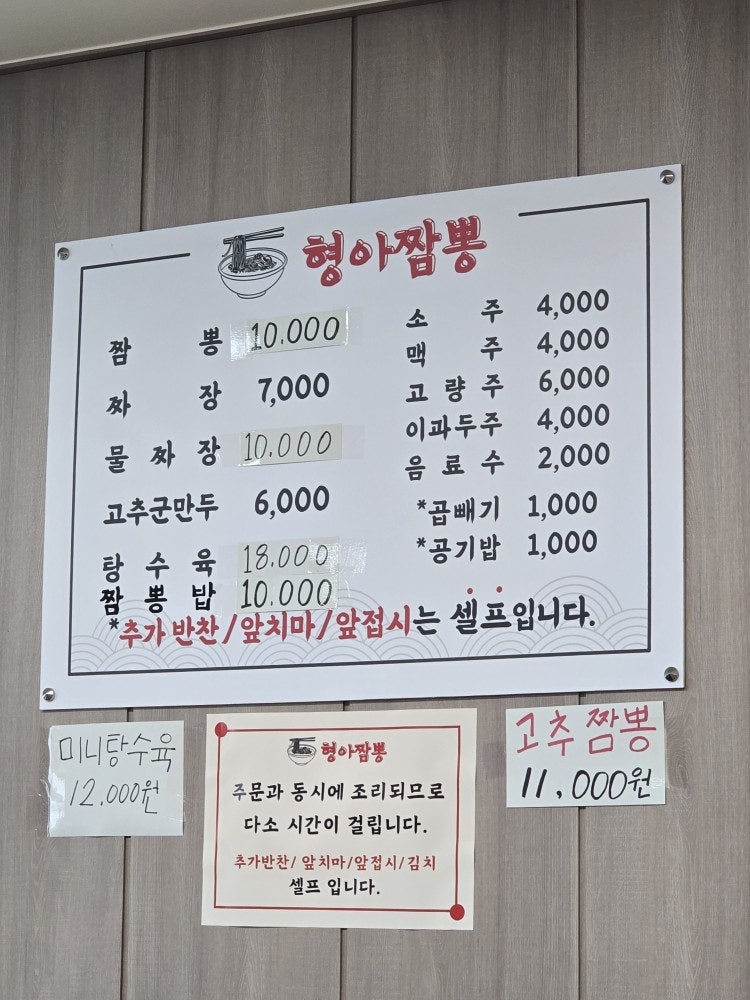 형아짬뽕
짬뽕 10.000
짜장 7,000
물짜장 10.000
고추군만두 6,000
탕수육 18.000
짬뽕밥 10.000
소주 4,000
맥주 4,000
고량주 6,000
이과두주 4,000
음료수 2,000
*곱빼기 1,000
*공기밥 1,000
*추가반찬/앞치마/앞접시는 셀프입니다.
미니탕수육
12.000원
형아짬뽕
주문과 동시에 조리되므로
다소 시간이 걸립니다.
추가반찬/앞치마/앞접시/김치
셀프 입니다.
고추짬뽕
11,000원